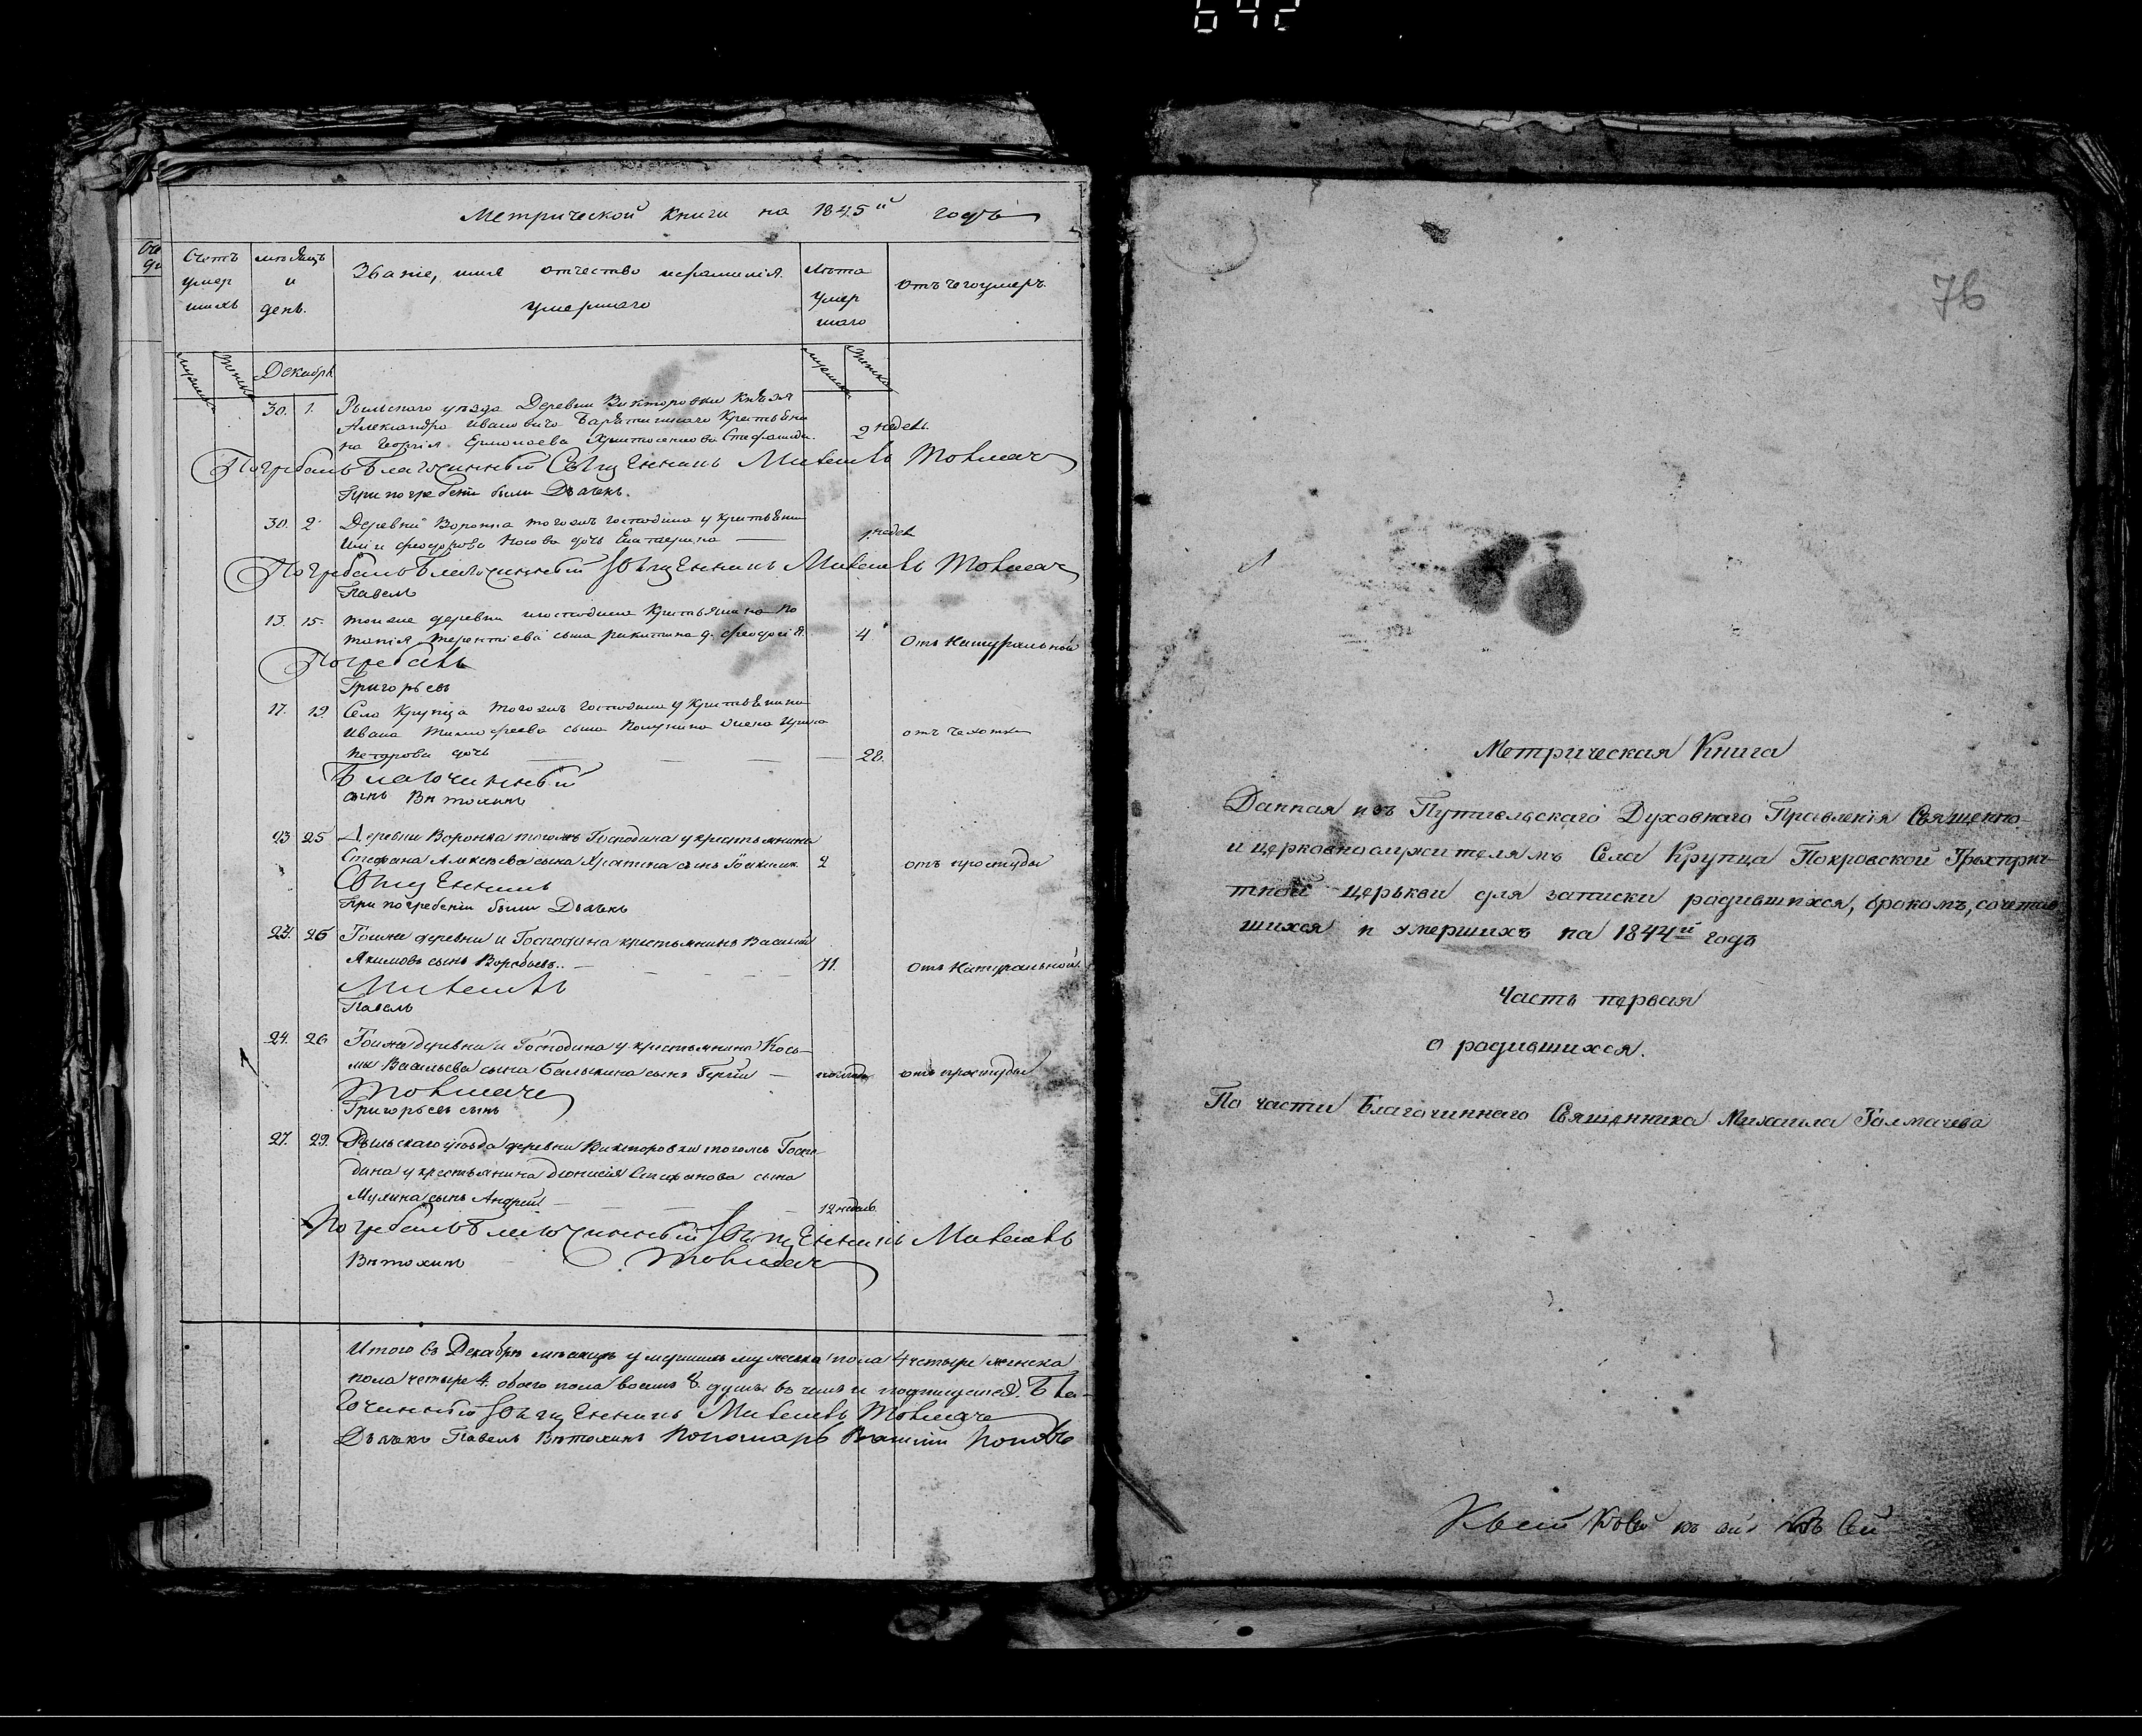 642
Метрической книги на 1845й годъ
Счетъ умершихъ
мѣсяцъ и день.
Званіе, имя отчество и фамилія умершаго
Лѣта умершаго
отъ чего умеръ
Декабрь
30. 1. Рыльскаго уѣзда Деревни Викторовки Князя
Александра Ивановича Барятинскаго Крестьяни
на Георгія Ермолаева 2 недел.
Погребалъ Благочинный Священникъ Михаилъ Толмачевъ
При погребеніи были Дьячекъ
30. 2. Деревни Воронка того жъ господина у крестьянина
феодорова Носова дочь Екатерина недел
Погребалъ Благочинный Священникъ Михаилъ Толмачевъ
Павелъ
13. 15. той же деревни и господина Крестьянина По
тапія Терентіева сына Никитина д. феодосія 4 отъ Натуральной
Погребалъ
Григорьевъ
17. 19. Села Крупца того жъ господина у крестьянина
Ивана Тимофеева сына жена Ирина отъ чахотки
Петрова дочь 28.
Благочинный
сынъ Вѣтохинъ
23 25 Деревни Воронка того жъ Господина у крестьянина
Стефана Алексѣева сына сынъ Іоакимъ 2 отъ простуды
Священникъ
При погребеніи были Дьячекъ
24. 26 Тойже деревни и Господина крестьянинъ Василій
Якимовъ сынъ Воробьевъ 71. отъ Натуральной
Михаилъ
Павелъ
24. 26 Тойже деревни и Господина у крестьянина Кось-
мы Васильева сына Балыкина сынъ Георгій отъ простуды
Толмачевъ
Григорьевъ сынъ
27. 29. Рыльскаго уѣзда деревни Викторовки того жъ Госпо-
дина у крестьянина Діонисія Стефанова сына
Мулина сынъ Андрей 12 недѣль
Погребалъ Благочинный Священникъ Михаилъ
Вѣтохинъ Толмачевъ
Итого въ Декабрѣ мѣсяцѣ умершихъ мужеска пола 4 четыре женска
пола четыре 4. обоего пола восемь 8. душъ въ чемъ и подпишемся. Бла-
гочинный Священникъ Михаилъ Толмачевъ
Дьячекъ Павелъ Вѣтохинъ Пономарь Василій Поповъ
76
Метрическая Книга
Данная изъ Путивльскаго Духовнаго Правленія Священно
и церковнослужителямъ Села Крупца Покровской Трехприч-
тной церькви для записки родившихся, бракомъ, сочетав
шихся и умершихъ на 1844й годъ
Часть первая
о родившихся.
По части Благочиннаго Священника Михаила Толмачева